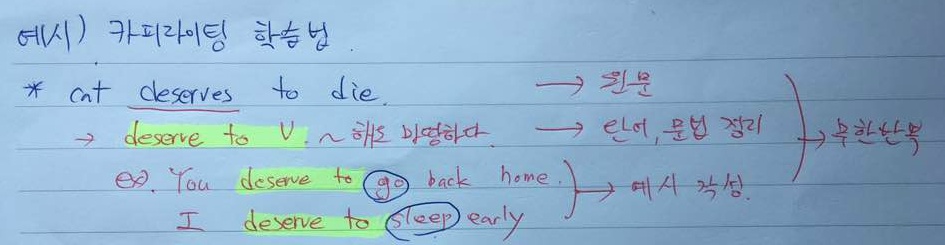 예시) 카피라이팅 학습법.
* cat deserves to die. → 원문
→ deserve to V. ~해도 마땅하다. → 단어, 문법 정리
→ 무한반복
ex). You deserve to go back home.
→ 예시 작성.
I deserve to sleep early